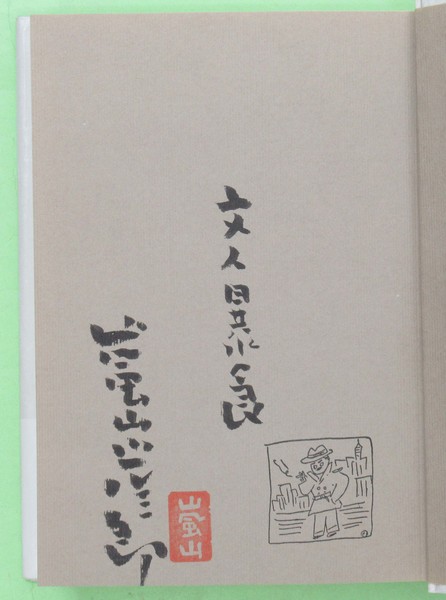 文人暴食
嵐山光三郎
嵐山